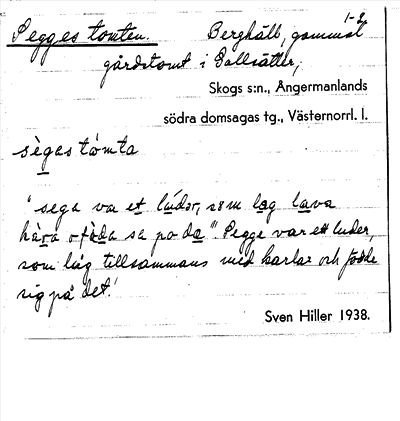 Pegges tomten. Berghålb, gammal 1-2
gårdstomt i Gallsätter,
Skogs s:n., Ångermanlands
södra domsagas tg., Västernorrl. l.
sègas tómta
"sega va et lúdər, sɞm lag lava
hàra o fòda sa po da". Pegge var ett luder,
som låg tillsammans med karlar och födde
sig på det.'
Sven Hiller 1938.